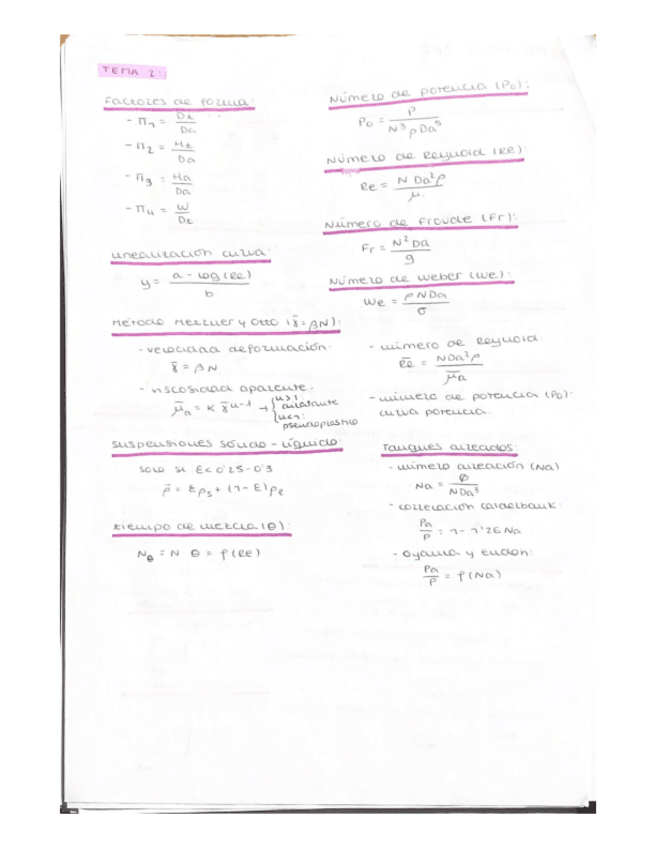 TEMA 2:
Factores de forma:
- Π1 = Dt/Da
- Π2 = Ht/Da
- Π3 = Ha/Da
- Π4 = W/Dt
Linealización curva:
y = (a - log(Re))/b
Método Metzner y Otto (γ̄ = βN):
- velocidad deformación:
γ̄ = βN
- viscosidad aparente:
μ̄a = K γ̄^n-1 → { n>1: dilatante
n<1: pseudoplástico
Suspensiones sólido - líquido:
solo si E<0'25-0'3
ρ̄ = Eρs + (1-E)ρl
tiempo de mezcla (θ):
Nθ = N · θ = f(Re)
Número de potencia (Po):
Po = P/(N³ρDa⁵)
Número de Reynold (Re):
Re = NDa²ρ/μ
Número de Froude (Fr):
Fr = N²Da/g
Número de Weber (We):
We = ρNDa/σ
- número de Reynold:
R̄e = NDa²ρ/μ̄a
- número de potencia (Po):
curva potencia.
Tanques aireados:
- número aireación (Na)
Na = Q/NDa³
- correlación Calderbank:
Pa/P = 1 - 1'26Na
- Oyama y Endon:
Pa/P = f(Na)